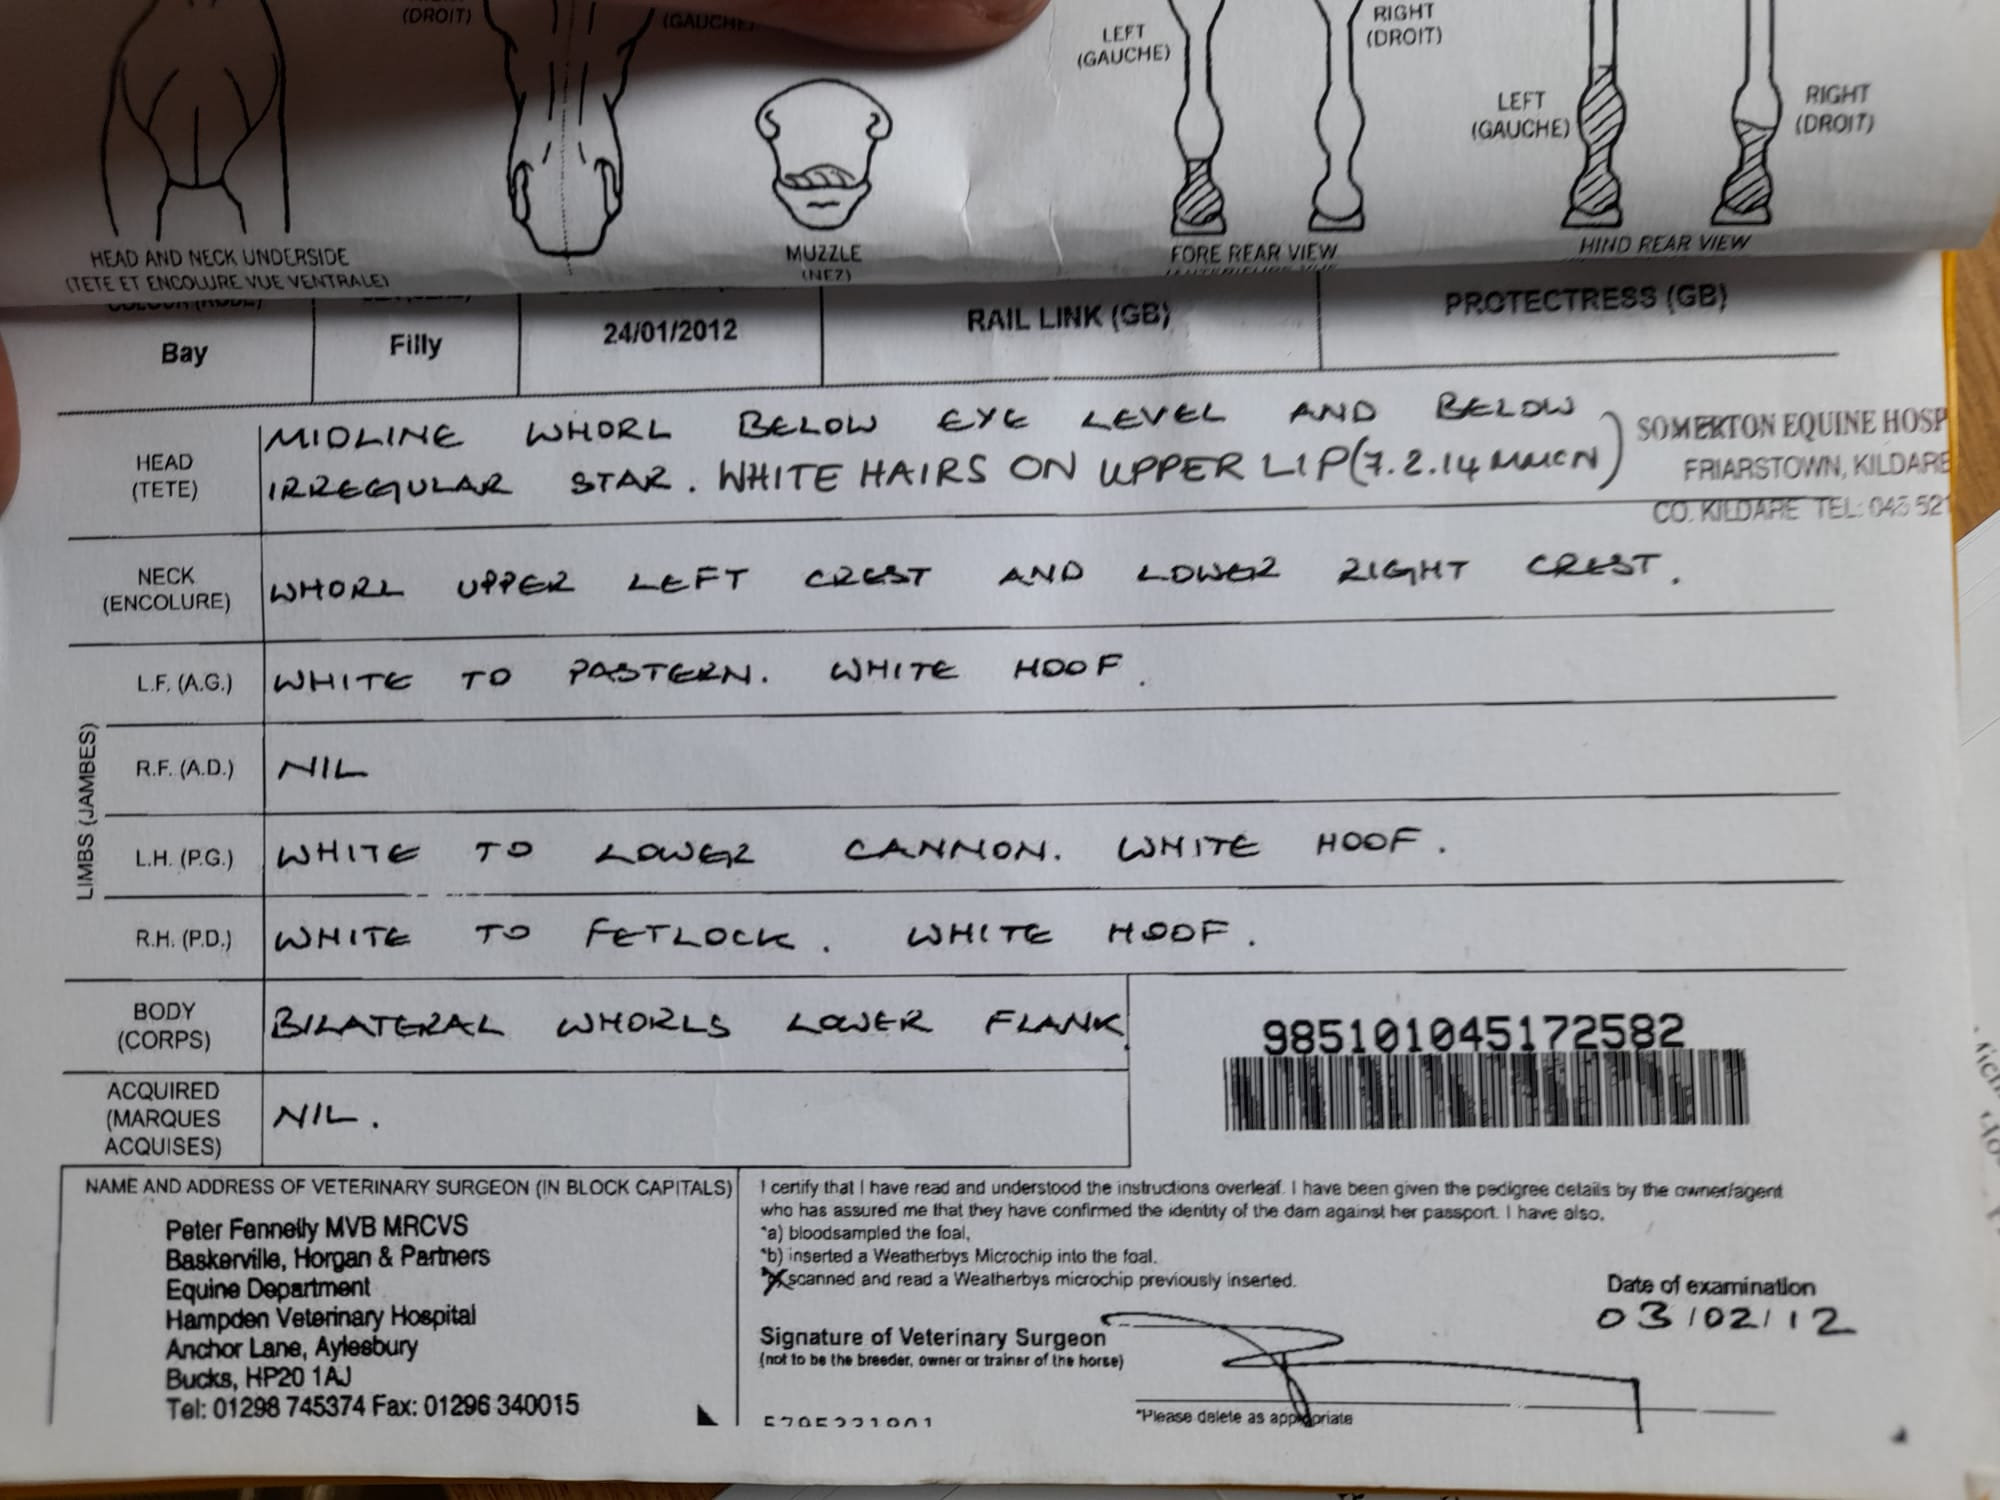 (DROIT)
(GAUCHE)
LEFT
(GAUCHE)
RIGHT
(DROIT)
LEFT
(GAUCHE)
RIGHT
(DROIT)
HEAD AND NECK UNDERSIDE
(TETE ET ENCOLURE VUE VENTRALE)
MUZZLE
(NEZ)
FORE REAR VIEW
HIND REAR VIEW
Bay
Filly
24/01/2012
RAIL LINK (GB)
PROTECTRESS (GB)
HEAD
(TETE)
MIDLINE WHORL BELOW EYE LEVEL AND BELOW
IRREGULAR STAR. WHITE HAIRS ON UPPER LIP (7.2.14 MMCN)
SOMERTON EQUINE HOSP
FRIARSTOWN, KILDARE
CO. KILDARE TEL: 045 521
NECK
(ENCOLURE)
WHORL UPPER LEFT CREST AND LOWER RIGHT CREST.
LIMBS (JAMBES)
L.F. (A.G.)
WHITE TO PASTERN. WHITE HOOF.
R.F. (A.D.)
NIL
L.H. (P.G.)
WHITE TO LOWER CANNON. WHITE HOOF.
R.H. (P.D.)
WHITE TO FETLOCK. WHITE HOOF.
BODY
(CORPS)
BILATERAL WHORLS LOWER FLANK.
985101045172582
ACQUIRED
(MARQUES
ACQUISES)
NIL.
NAME AND ADDRESS OF VETERINARY SURGEON (IN BLOCK CAPITALS)
Peter Fennelly MVB MRCVS
Baskerville, Horgan & Partners
Equine Department
Hampden Veterinary Hospital
Anchor Lane, Aylesbury
Bucks, HP20 1AJ
Tel: 01298 745374 Fax: 01296 340015
I certify that I have read and understood the instructions overleaf. I have been given the pedigree details by the owner/agent
who has assured me that they have confirmed the identity of the dam against her passport. I have also,
*a) bloodsampled the foal,
*b) inserted a Weatherbys Microchip into the foal.
scanned and read a Weatherbys microchip previously inserted.
Date of examination
03/02/12
Signature of Veterinary Surgeon
(not to be the breeder, owner or trainer of the horse)
*Please delete as appropriate